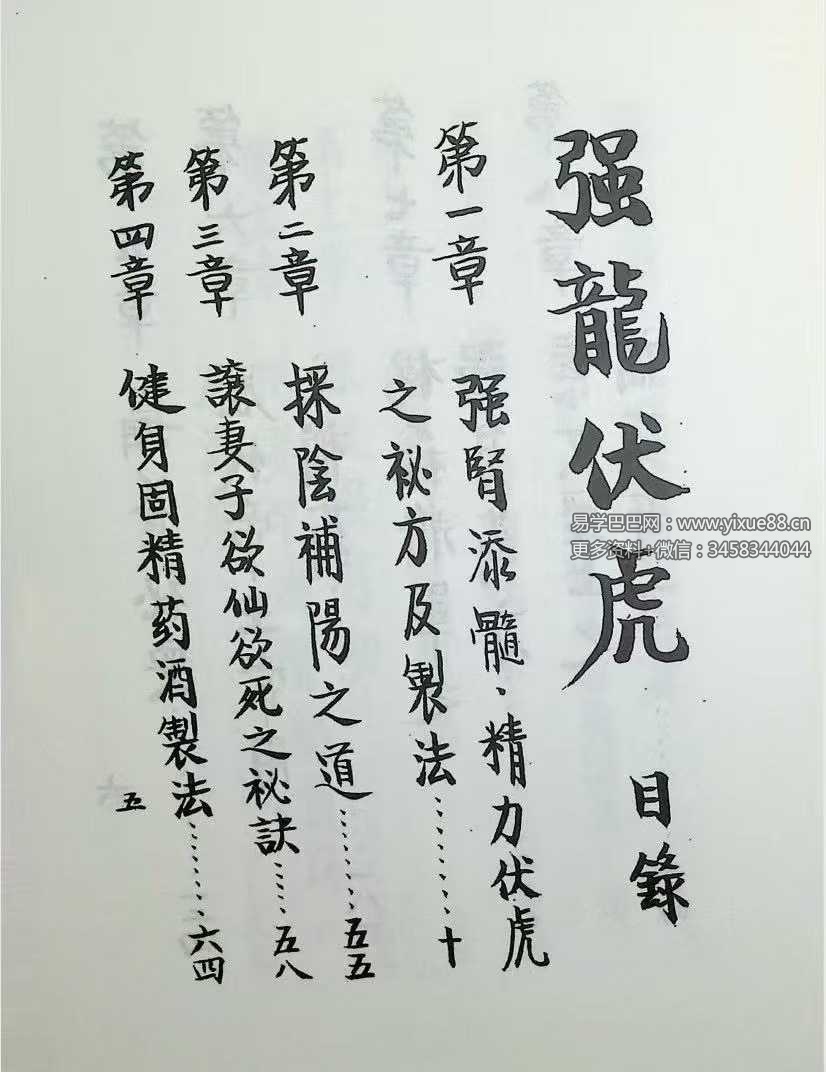 强龍伏虎 目錄
第一章 强腎添髓、精力伏虎
之祕方及製法………十
第二章 採陰補陽之道………五五
第三章 讓妻子欲仙欲死之祕訣……五八
第四章 健身固精药酒製法………六四
五
易学巴巴网：www.yixue88.cn
更多资料+微信：3458344044